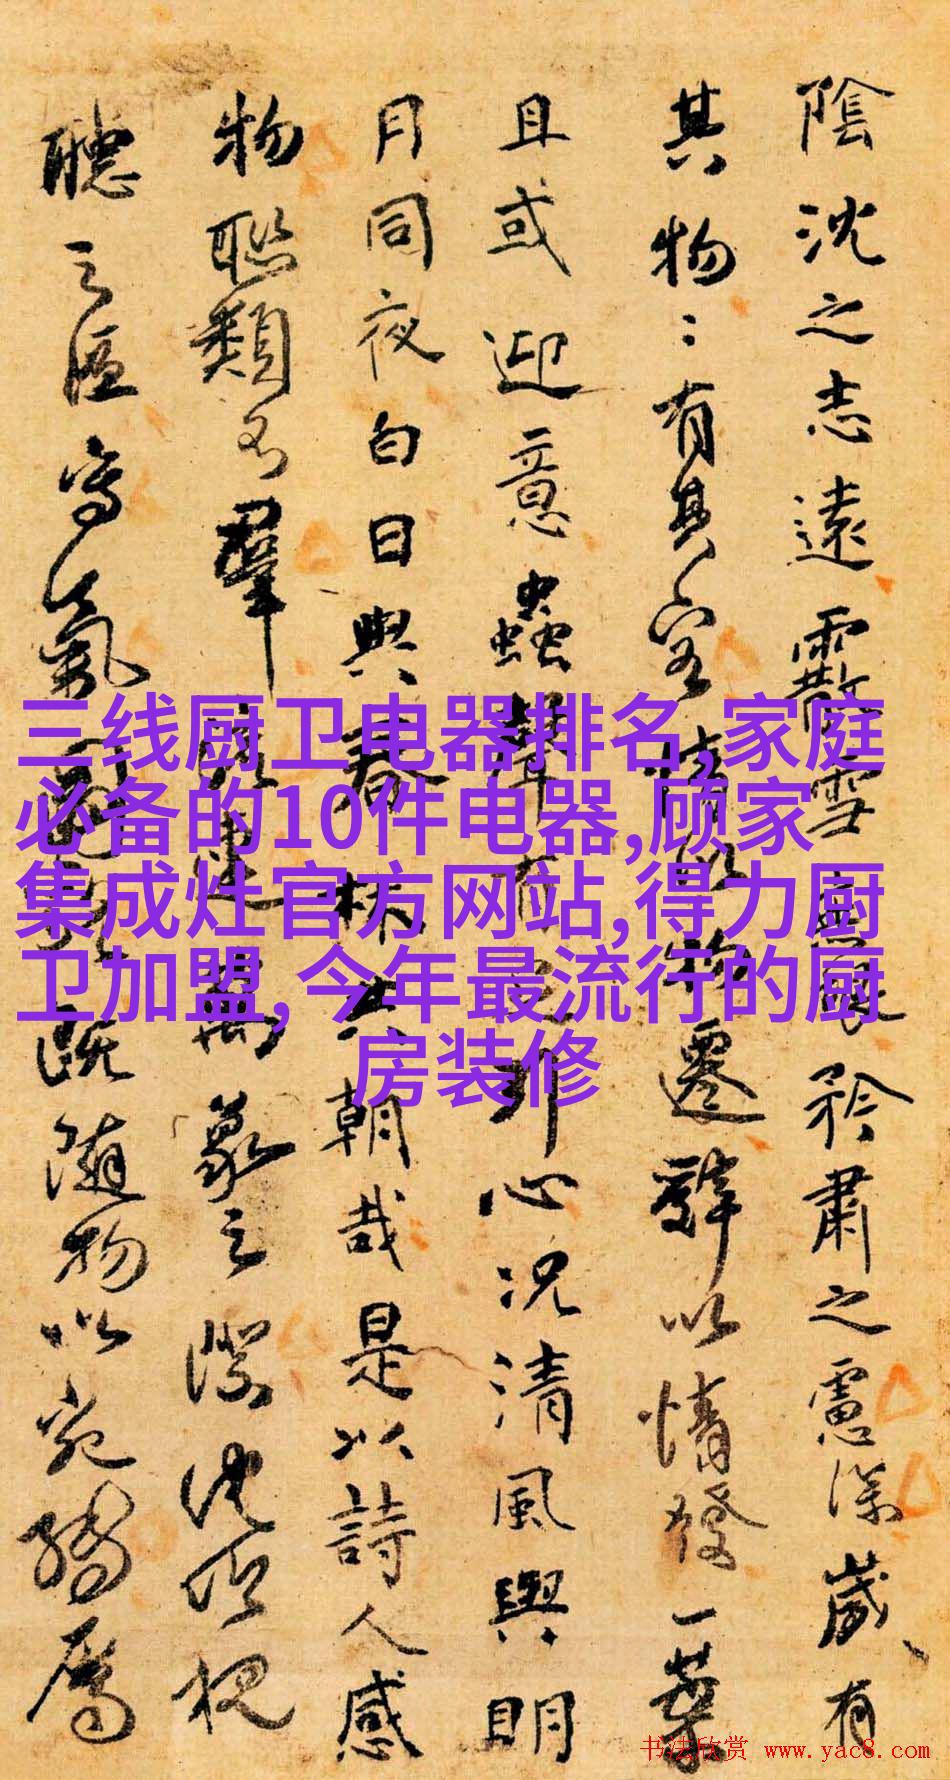 陰沈之志遠霰雪無垠矜肅之慮深歲有
其物〻有其容情以物遷辭以情發一葉
且或迎意蟲聲有足引心況清風與明
月同夜白日與春林共朝哉是以詩人感
物聯類不連萬象之際沈吟視
聽之區寫氣圖貌既隨物以宛轉屬
三线厨卫电器排名,家庭
必备的10件电器,顾家
集成灶官方网站,得力厨
卫加盟,今年最流行的厨
房装修
书法欣赏 www.yac8.com